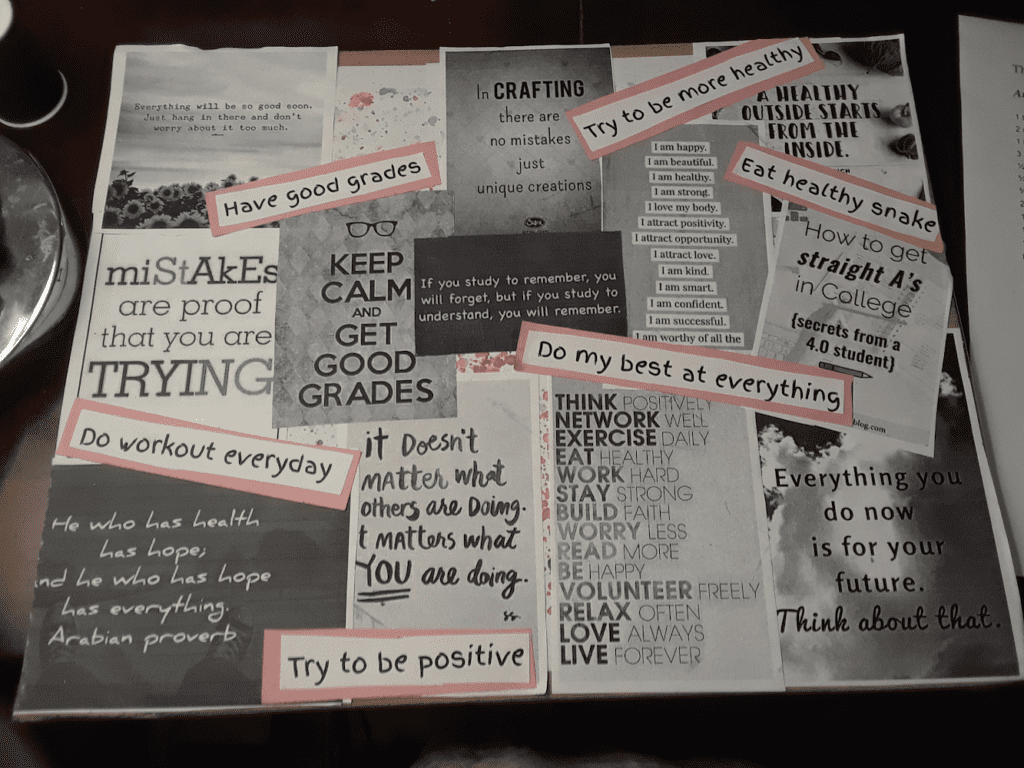 Everything will be so good soon.
Just hang in there and don't
worry about it too much.
In CRAFTING
there are
no mistakes
just
unique creations
Try to be more healthy
A HEALTHY
OUTSIDE STARTS
FROM THE
INSIDE.
Have good grades
I am happy.
I am beautiful.
I am healthy.
I am strong.
I love my body.
I attract positivity.
I attract opportunity.
I attract love.
I am kind.
I am smart.
I am confident.
I am successful.
I am worthy of all the
Eat healthy snake
miStAkEs
are proof
that you are
TRYING
KEEP
CALM
AND
GET
GOOD
GRADES
If you study to remember, you
will forget, but if you study to
understand, you will remember.
How to get
straight A's
in College
{secrets from a
4.0 student}
blog.com
Do my best at everything
Do workout everyday
He who has health
has hope;
nd he who has hope
has everything.
Arabian proverb
iT Doesn't
matter what
others are Doing.
t matters what
YOU are doing.
THINK POSITIVELY
NETWORK WELL
EXERCISE DAILY
EAT HEALTHY
WORK HARD
STAY STRONG
BUILD FAITH
WORRY LESS
READ MORE
BE HAPPY
VOLUNTEER FREELY
RELAX OFTEN
LOVE ALWAYS
LIVE FOREVER
Everything you
do now
is for your
future.
Think about that.
Try to be positive